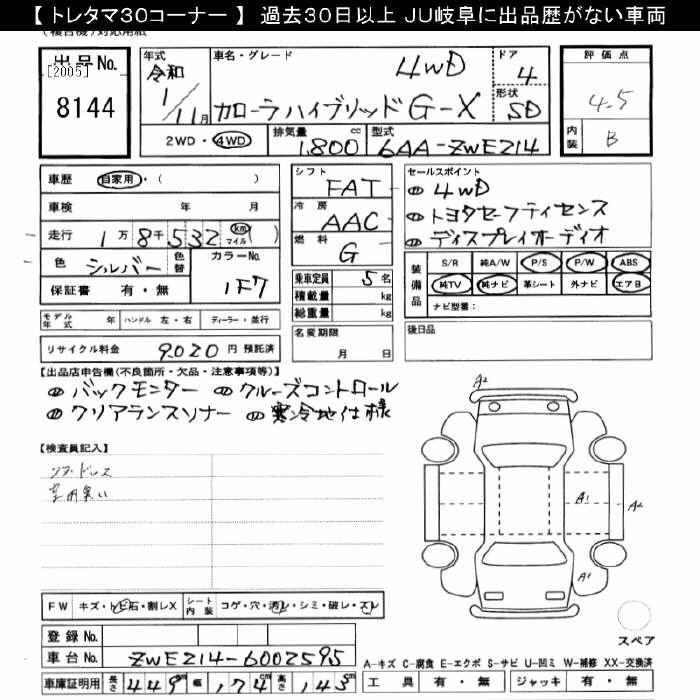 【 トレタマ30コーナー 】 過去30日以上 JU岐阜に出品歴がない車両
出品No. [2005] 8144
年式 令和 1/11月
車名・グレード 4WD カローラハイブリッド G-X
ドア 4
形状 SD
評価点 4.5
内装 B
2WD・4WD 排気量 1,800 cc 型式 6AA-ZWE214
車歴 自家用・( )
車検 年 月
走行 1万8千532 km マイル
色 シルバー 色替 カラーNo. 1F7
保証書 有・無
モデル年式 年 ハンドル 左・右 ディーラー・並行
リサイクル料金 9020 円 預託済
シフト FAT
冷房 AAC
燃料 G
乗車定員 5 名
積載量 kg
総重量 kg
名変期限 月 日
セールスポイント
4WD
トヨタセーフティセンス
ディスプレイオーディオ
装備品 S/R 純A/W P/S P/W ABS
純TV 純ナビ 革シート 外ナビ エアB
ナビ型番:
後日品
【出品店申告欄(不良箇所・欠品・注意事項等)】
バックモニター クルーズコントロール
クリアランスソナー 寒冷地仕様
【検査員記入】
A2
A1 A2
A1
スペア
FW キズ・トビ石・割レX シート内装 コゲ・穴・汚レ・シミ・破レ・スレ
登録No.
車台No. ZWE214-6002595
車庫証明用 長さ 449 幅 174 cm 高さ 145 cm
A-キズ C-腐食 E-エクボ S-サビ U-凹ミ W-補修 XX-交換済
工具 有・無 ジャッキ 有・無